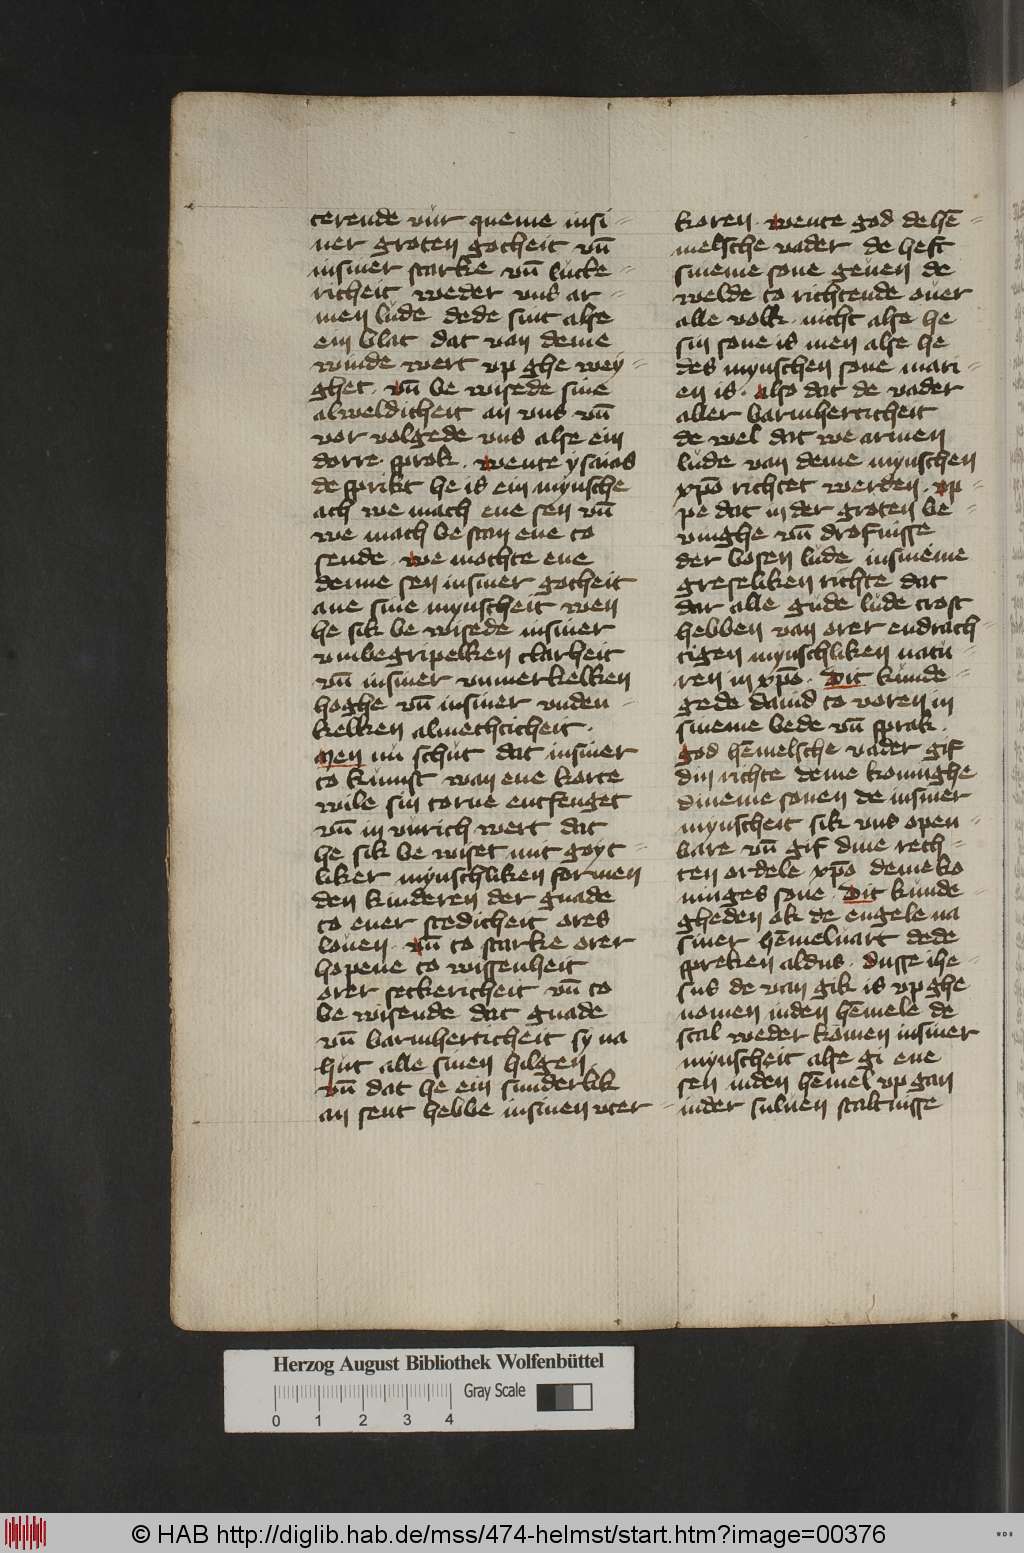 terende vůr queme insi-
ner groten gotheit vn̄
insiner starke vn̄ lucke-
richeit weder vns ar-
men lude dede sint alse
ein blat dat van deme
winde wert vp ghe wey-
ghet. vn̄ be wisede sine
alweldicheit an vns vn̄
vor volgede vns alse ein
dorre sprok. wente ysaias
de sprikt he is ein mynsche
ach we mach ene sen vn̄
we mach be stan ene to
sende. we mochte ene
denne sen insiner gotheit
ane sine mynscheit wen
he sik be wisede insiner
vmbegripelken clarheit
vn̄ insiner vnmerkelken
hoghe vn̄ insiner vnden-
kelken almechticheit.
Men nů schůt dat insiner
to kumst wan ene korte
wile sin torne entfenget
vn̄ in vůrich wert dat
he sik be wiset mit goyt-
liker mynschliken formen
den kinderen der gnade
to ener stedicheit ores
louen. vn̄ to starke orer
hopene to wissenheit
orer seckericheit vn̄ to
be wisende dat gnade
vn̄ barmherticheit sy na
hůt alle sinen hilgen.
vn̄ dat he ein sunderlik
an sent hebbe insinen vter-
koren. wente god de hē-
melsche vader de heft
sineme sone geuen de
welde to richtende ouer
alle volk. nicht alse he
sin sone is men alse he
des mynschen sone mari-
en is. also dat de vader
aller barmherticheit
de wel dat we armen
lude van deme mynschen
xpō richtet werden. vp-
pe dat in der groten be-
uinghe vn̄ drofnisse
der bosen lude insineme
greseliken richte dat
dar alle gude lude trost
hebben van orer endrach-
tigen mynschliken natu-
ren in xpō. Dit kunde-
gede dauid to voren in
sineme bede vn̄ sprak.
god hēmelsche vader gif
din richte deme koninghe
dineme sonen de insiner
mynscheit sik vns open-
bare vn̄ gif dine rech-
ten ordele xpō deme ko
ninges sone. Dit kunde-
gheden ok de engele na
siner hēmeluart dede
spreken aldus. dusse ihe-
sus de van gik is vp ghe
nomen inden hēmele de
scal weder komen insiner
mynscheit alse gi ene
sen inden hēmel vp gan
inder suluen staltnisse
Herzog August Bibliothek Wolfenbüttel
Gray Scale
0 1 2 3 4
© HAB http://diglib.hab.de/mss/474-helmst/start.htm?image=00376